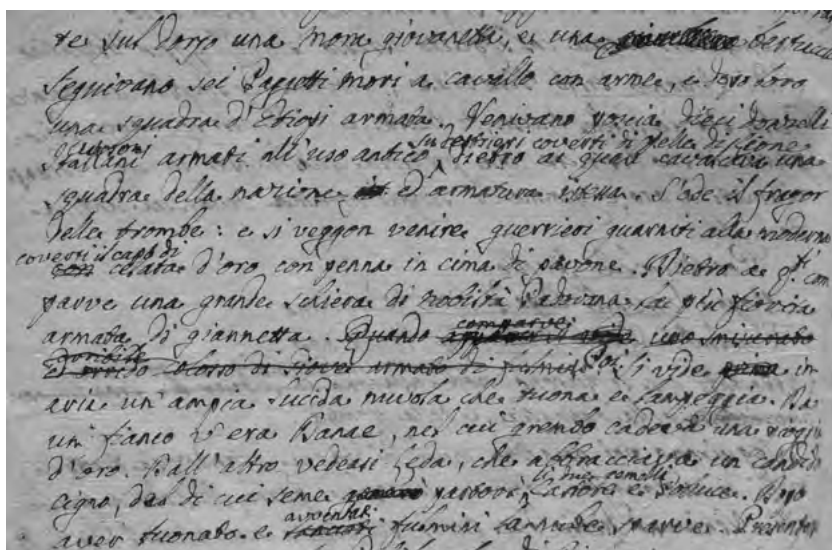 te sul dorso una mora giovanetta, e una bertuccia
seguivano sei Paggetti mori a cavallo con arme, e dopo loro
una squadra d'Etiopi armata. Venivano poscia dieci donzelli
e cursori su destrieri coverti di pelle di lione
italiani armati all'uso antico, dietro ai quali cavalcava una
squadra della nazione ed armatura istessa. S'ode il fragor
delle trombe: e si veggon venire guerrieri guarniti alla moderna
coverti il capo di
con celata d'oro con penna in cima di pavone. Dietro a q.ti com
parve una grande schiera di nobiltà Padovana la più fiorita
armata di giannetta. Quando comparve uno smisurato
orribile
ed orrido colosso di Giove armato di fulmine Poi si vide in
aria un'ampia lucida nuvola che tuona e lampeggia. Da
un fianco v'era Danae, nel cui grembo cadeva una pioggia
d'oro. Dall'altro vedeasi Leda, che abbracciava un candido
cigno, del di cui seme li due gemelli Castore e Polluce. Dopo
avventati
aver tuonato e lanciati fulmini la nube sparve. Presente